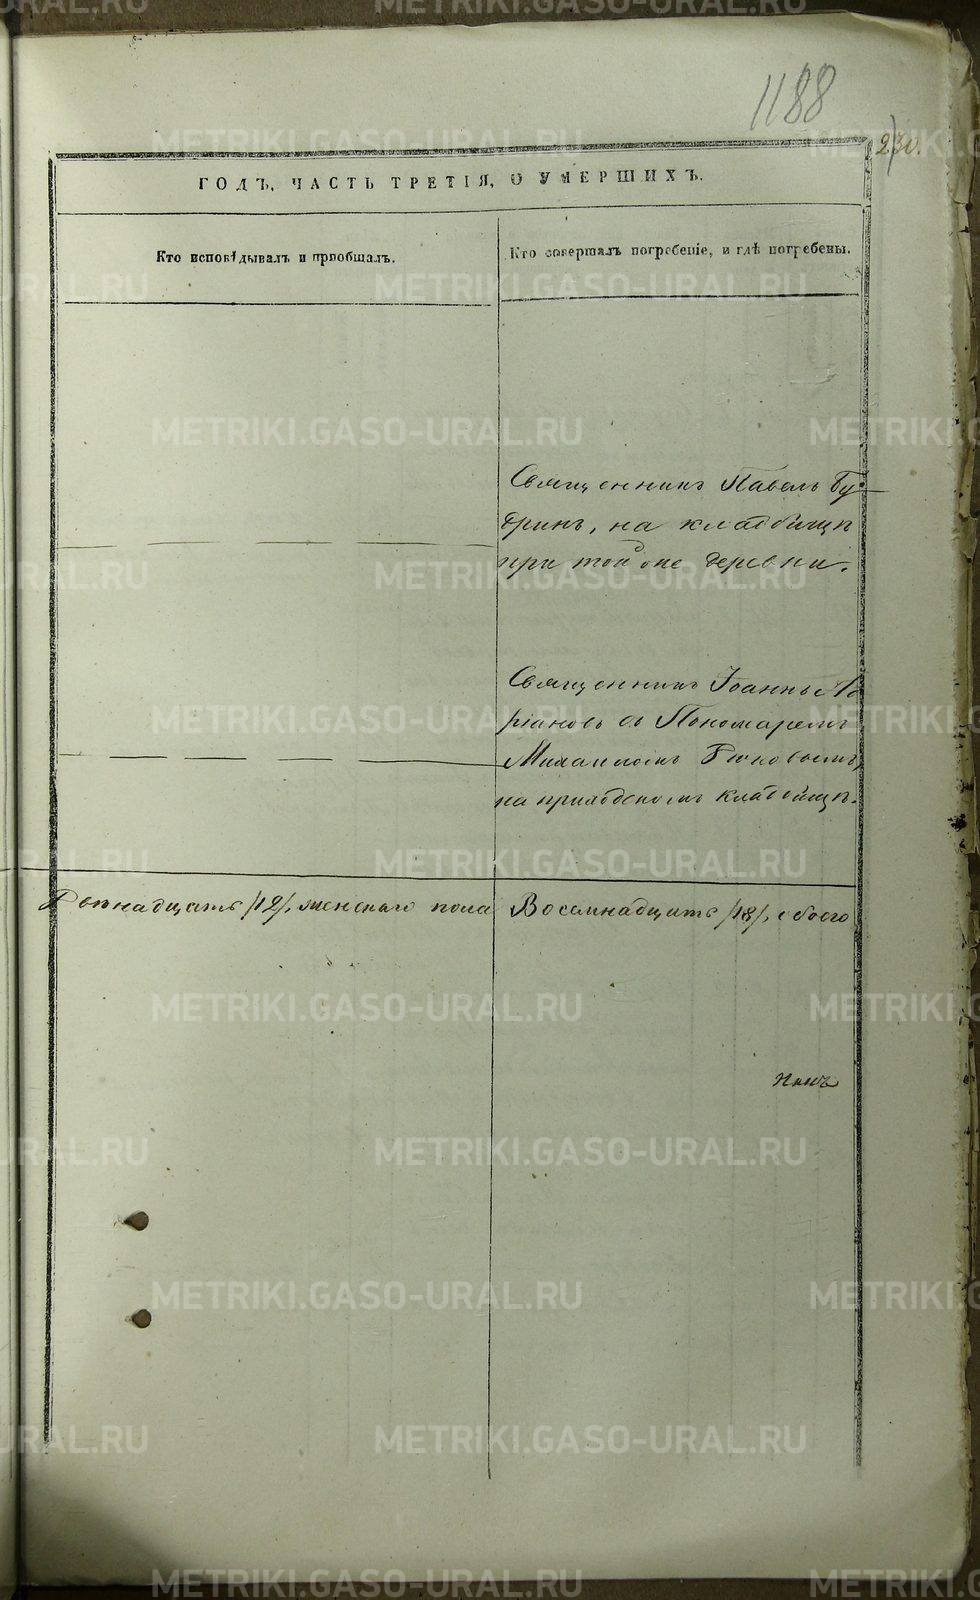 1188
230.
ГОДЪ, ЧАСТЬ ТРЕТІЯ, О УМЕРШИХЪ.
Кто исповѣдывалъ и пріобщалъ.
Кто совершалъ погребеніе, и гдѣ погребены.
Священникъ Павелъ Бу-
дринъ, на кладбищѣ
при той же деревни.
Священникъ Іоаннъ
съ Пономаремъ
Михаиломъ
на приходскомъ кладбищѣ.
Двѣнадцать /12/, женскаго пола
Восемнадцать /18/, обоего
METRIKI.GASO-URAL.RU